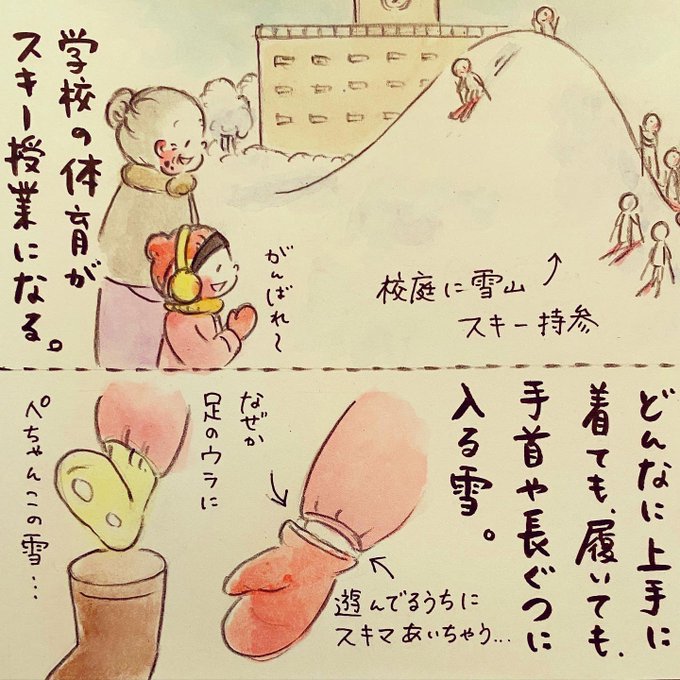 学校の体育が
スキー授業になる。
がんばれ〜
校庭に雪山
スキー持参
どんなに上手に
着ても、履いても、
手首や長ぐつに
入る雪。
遊んでるうちに
スキマあいちゃう...
なぜか
足のウラに
ぺちゃんこの雪...